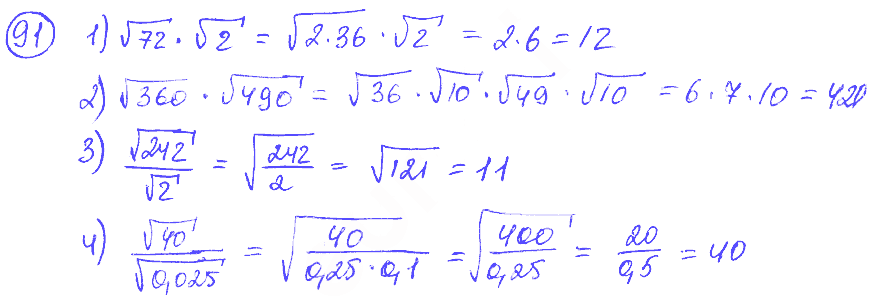 91 1) √72 · √2 = √2·36 · √2 = 2·6 = 12
2) √360 · √490 = √36 · √10 · √49 · √10 = 6 · 7 · 10 = 420
3) √242/√2 = √(242/2) = √121 = 11
4) √40/√0,025 = √(40/(0,25·0,1)) = √(400/0,25) = 20/0,5 = 40